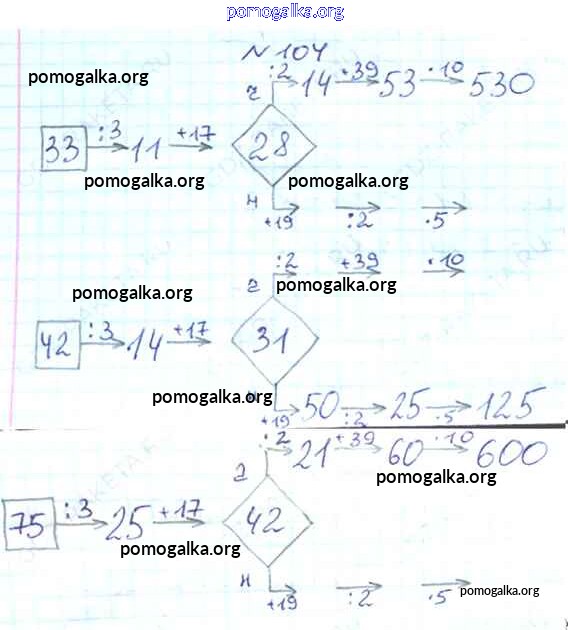 pomogalka.org
N 104
pomogalka.org
ч :2 14 +39 53 ·10 530
33 :3 11 +17 28
pomogalka.org pomogalka.org
н +19 :2 ·5
г :2 +39 ·10
pomogalka.org pomogalka.org
42 :3 14 +17 31
pomogalka.org
+19 50 :2 25 ·5 125
:2 21 +39 60 ·10 600
pomogalka.org
75 :3 25 +17 42
pomogalka.org
н +19 :2 ·5
pomogalka.org